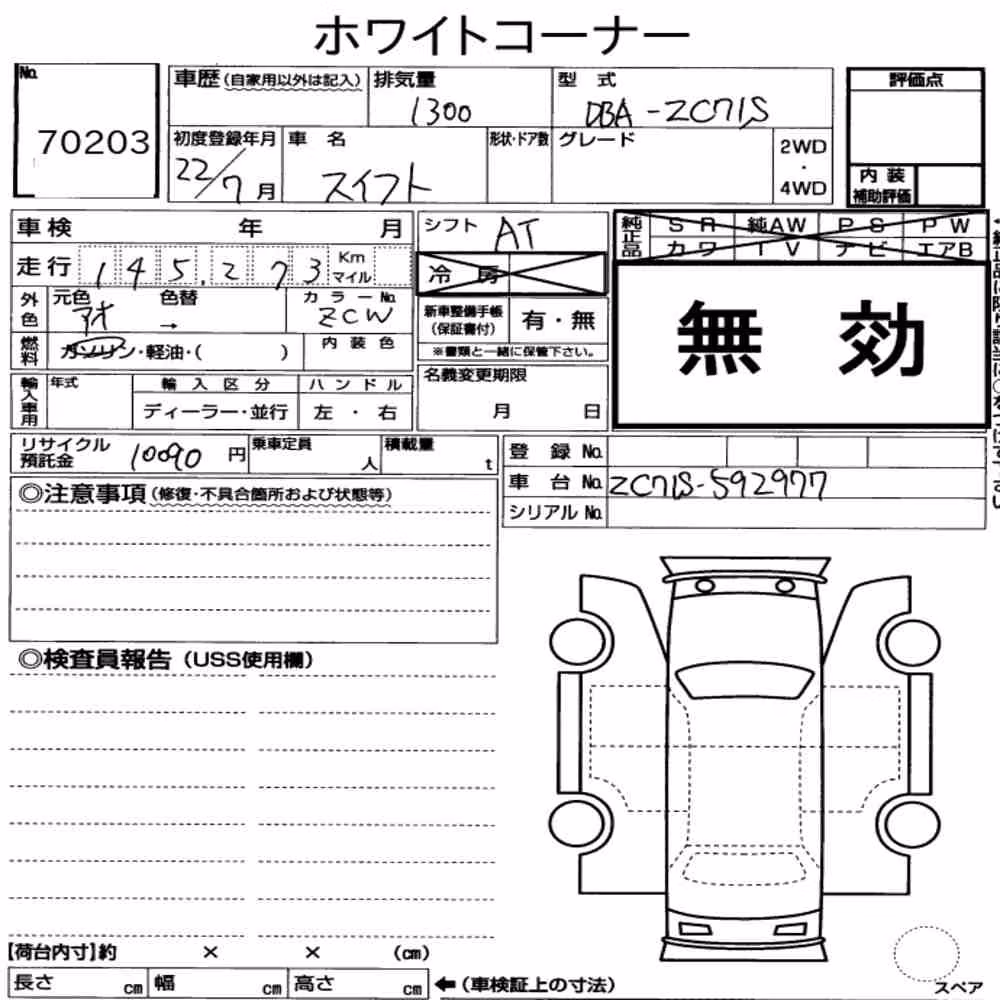 ホワイトコーナー
No. 70203
車歴(自家用以外は記入) 排気量 1300 型式 DBA-ZC71S 評価点
初度登録年月 22/7月 車名 スイフト 形状・ドア数 グレード 2WD・4WD
内装補助評価
車検 年 月 シフト AT 純正品 SR 純AW PS PW
カワ TV ナビ エアB
走行 145,273 Km マイル 冷房
無効
外色 元色 色替 → カラーNo. ZCW
新車整備手帳(保証書付) 有・無
※書類と一緒に保管下さい。
燃料 ガソリン・軽油・( ) 内装色
輸入車用 年式 輸入区分 ディーラー・並行 ハンドル 左・右
名義変更期限 月 日
リサイクル預託金 10090円 乗車定員 人 積載量 t
登録No.
車台No. ZC71S-592977
シリアルNo.
◎注意事項(修復・不具合箇所および状態等)
◎検査員報告(USS使用欄)
【荷台内寸】約 × × (cm)
長さ cm 幅 cm 高さ cm ←(車検証上の寸法)
スペア